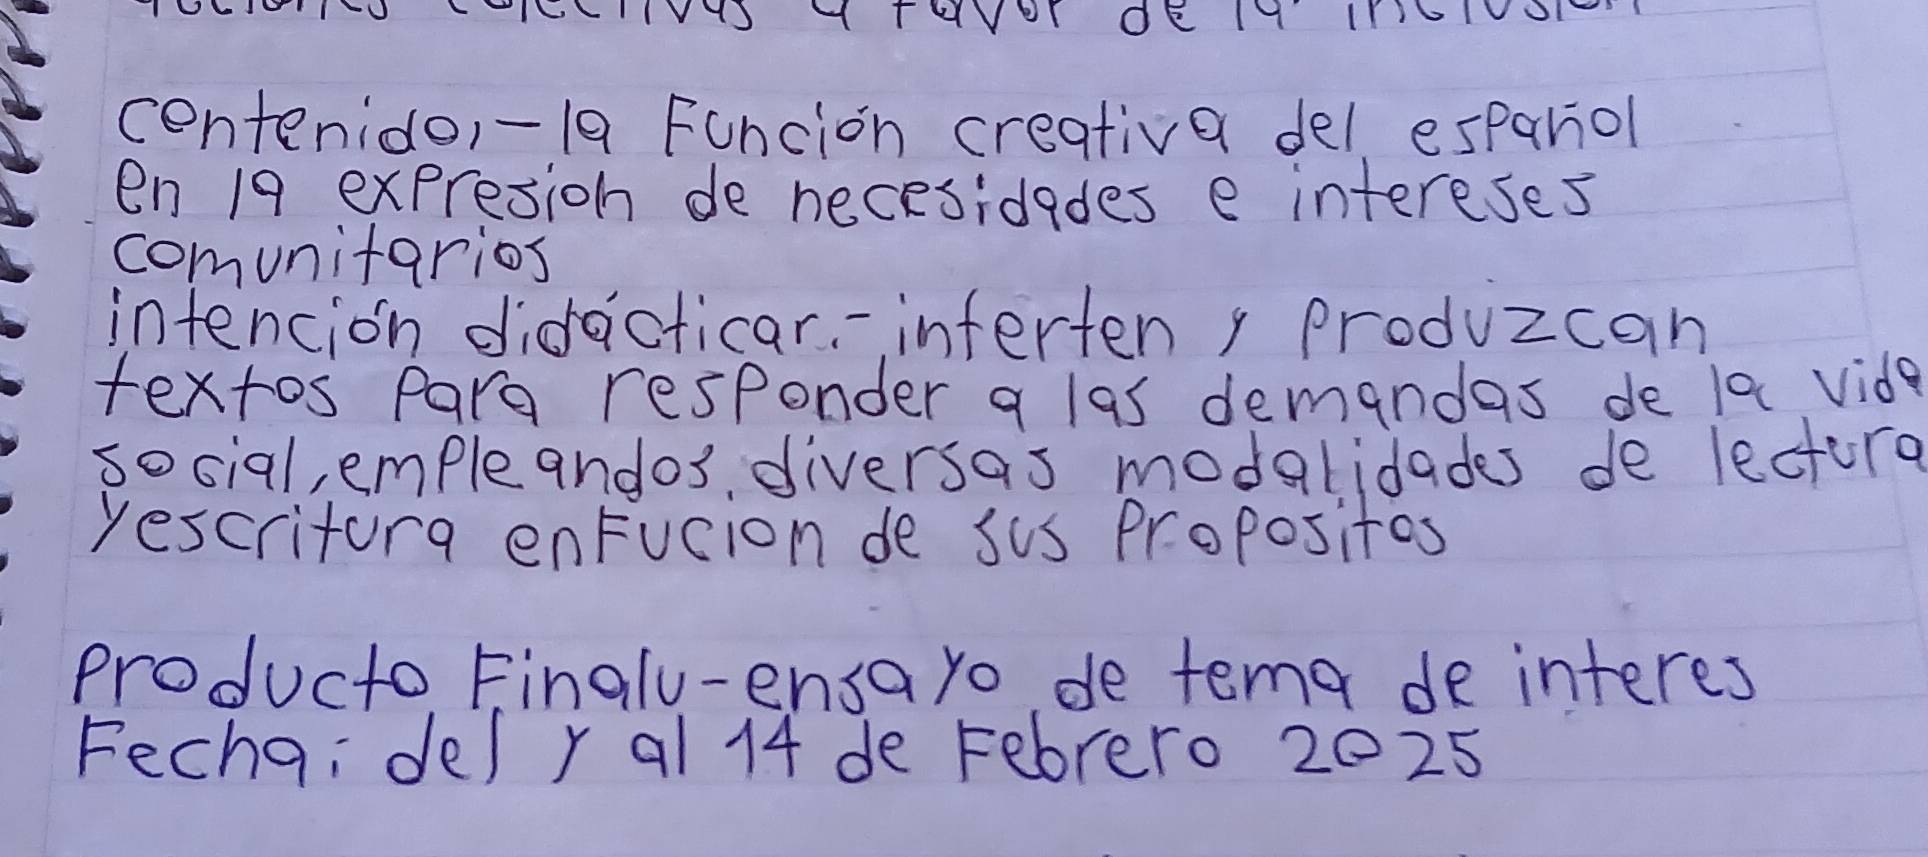 colectivas a favor de la inclusion
contenido,-la Función creativa del español
en la expresion de necesidades e intereses
comunitarios
intención didácticar.-inferten y produzcan
textos para responder a las demandas de la vida
social, empleandos, diversas modalidades de lectura
yescritura enFucion de sus Propositos
Producto Finalu-ensayo de tema de interes
Fecha: del y al 14 de Febrero 2025